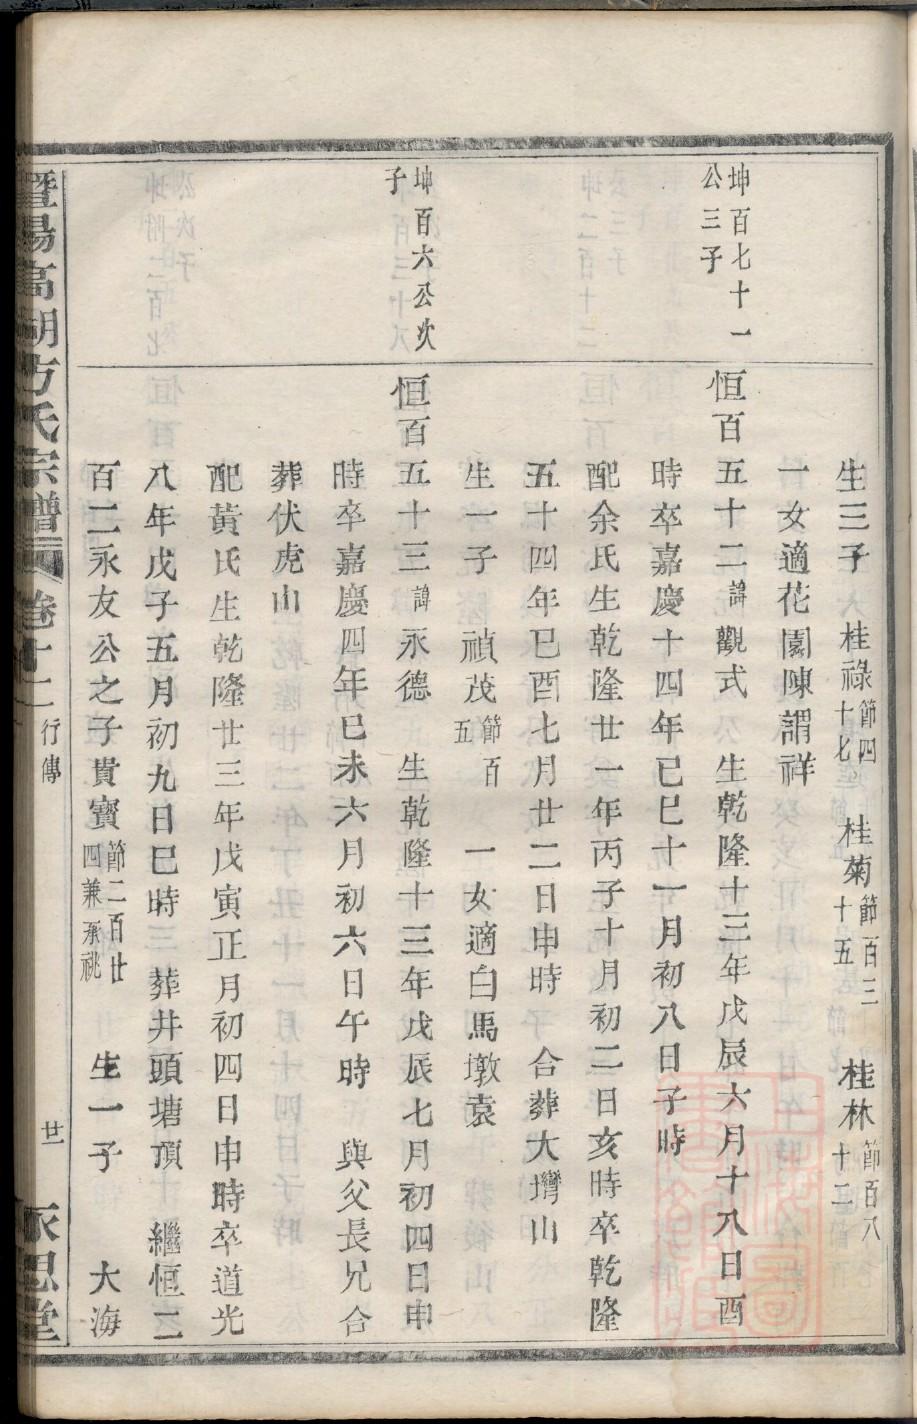 生三子 桂祿節四十七 桂菊節百三十五 桂林節百八十二
一女適花園陳謂祥
坤百七十一公三子
恒百五十二諱觀式 生乾隆十三年戊辰六月十八日酉
時卒嘉慶十四年己巳十一月初八日子時
配余氏生乾隆廿一年丙子十月初二日亥時卒乾隆
五十四年己酉七月廿二日申時 合葬大塆山
生一子 禎茂節百五 一女適白馬墩袁
坤百六公次子
恒百五十三諱永德 生乾隆十三年戊辰七月初四日申
時卒嘉慶四年己未六月初六日午時 與父長兄合
葬伏虎山
配黃氏生乾隆廿三年戊寅正月初四日申時卒道光
八年戊子五月初九日巳時 葬井頭塘頂 繼恒二
百二永友公之子貴寶節二百廿四兼承祧 生一子 大海
暨陽高湖方氏宗譜 卷十二 行傳 廿一 永思堂